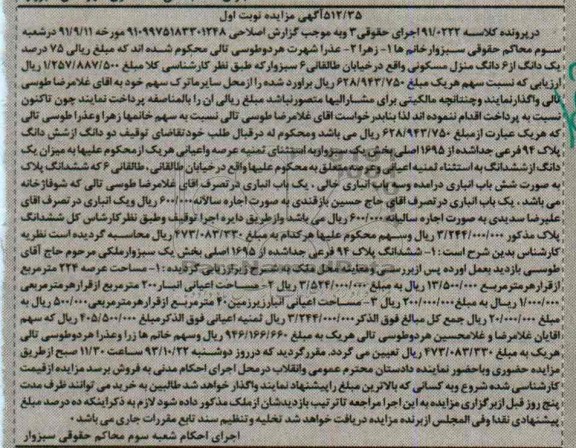 ۵۱۲/۳۵آگهی مزایده نوبت اول
درپرونده کلاسه ۹۱/۰۲۲۲اجرای حقوقی۳ وبه موجب گزارش اصلاحی ۹۱۰۹۹۷۵۱۸۳۳۰۱۲۴۸ مورخه ۹۱/۹/۱۱ درشعبه
سوم محاکم حقوقی سبزوارخانم ها ۱- زهرا ۲- عذرا شهرت هردوطوسی تالی محکوم شده اند که مبلغ ریالی ۷۵ درصد
یک دانگ از۶ دانگ منزل مسکونی واقع درخیابان طالقانی۶ سبزوارکه طبق نظر کارشناسی کلا مبلغ ۱/۲۵۷/۸۸۷/۵۰۰ ریال
ارزیابی که نسبت سهم هریک مبلغ ۶۲۸/۹۴۳/۷۵۰ ریال براورد شده را ازمحل سایرماترک سهم خود به اقای غلامرضا طوسی
تالی واگذارنمایند وچنانچه مالکیتی برای مشارالیها متصورنباشد مبلغ ریالی ان را بالمناصفه پرداخت نمایند چون تاکنون
نسبت به پرداخت اقدام ننموده اند لذا بنابدرخواست اقای غلامرضا طوسی تالی نسبت به سهم خانمها زهرا وعذرا طوسی تالی
که هریک عبارت ازمبلغ ۶۲۸/۹۴۳/۷۵۰ ریال می باشد ومحکوم له درقبال طلب خودتقاضای توقیف دو دانگ ازشش دانگ
پلاک ۹۴ فرعی جداشده از ۱۶۹۵ اصلی بخش یک سبزواربه استثنای ثمنیه عرصه واعیانی هریک ازمحکوم علیها به میزان یک
دانگ ازششدانگ به استثناء ثمنیه اعیانی وعرصه متعلق به محکوم علیها واقع درخیابان طالقانی ، طالقانی ۶ که ششدانگ پلاک
به صورت شش باب انباری درامده وسه باب انباری خالی ، یک باب انباری درتصرف اقای غلامرضا طوسی تالی که شوفاژخانه
می باشد ، یک باب انباری در تصرف اقای حاج حسین بازقندی به صورت اجاره سالانه۶۰۰/۰۰۰ ریال ویک انباری در تصرف اقای
علیرضا سدیدی به صورت اجاره سالیانه ۶۰۰/۰۰۰ ریال می باشد وازطریق دایره اجرا توقیف وطبق نظرکارشاس کل ششدانگ
پلاک مذکور ۳/۲۴۴/۰۰۰/۰۰۰ ریال وسهم محکوم علیها هرکدام به مبلغ ۴۷۳/۰۸۳/۳۳۰ ریال محاسبه گردیده است نظریه
کارشناس بدین شرح است : ۱- ششدانگ پلاک ۹۴ فرعی جداشده از ۱۶۹۵ اصلی بخش یک سبزوارملکی مرحوم حاج آقای
طوسی بازدید بعمل اورده پس ازبررسی ومعاینه محل ملک به شرح زیرارزیابی گردیده : ۱- مساحت عرصه ۲۲۴ مترمربع
ازقرارهرمترمربع ۱۳/۵۰۰/۰۰۰ ریال به مبلغ ۳/۵۲۴/۰۰۰/۰۰۰ ریال ۲- مساحت اعیانی انبار ۲۰۰ مترمربع ازقرارهرمترمربعی
۱/۰۰۰/۰۰۰ ریال به مبلغ ۲۰۰/۰۰۰/۰۰۰ ریال ۳- مساحت اعیانی انبارزیرزمین ۴۰ مترمربع ازقرارهرمترمربعی ۵۰۰/۰۰۰ ریال به
مبلغ ۲۰/۰۰۰/۰۰۰ ریال جمع کل مبالغ فوق الذکر ۳/۲۴۴/۰۰۰/۰۰۰ ریال ثمنیه اعیانی فوق الذکرمبلغ ۴۰۵/۵۰۰/۰۰۰ ریال که سهم
اقایان غلامرضا و غلامحسین هردوطوسی تالی هریک به مبلغ ۹۴۶/۱۶۶/۶۶۰ ریال وسهم خانم ها زرا وعذرا هردوطوسی تالی
هریک به مبلغ ۴۷۳/۰۸۳/۳۳۰ ریال تعیین می گردد. مقررگردید که درروز دوشنبه ۹۳/۱۰/۲۲ ساعت ۱۱/۳۰ صبح ازطریق
مزایده حضوری وباحضور نماینده دادستان محترم عمومی وانقلاب درمحل اجرای احکام مدنی به فروش برسد مزایده ازقیمت
کارشناسی شده شروع وبه کسانی که بالاترین مبلغ راپیشنهاد نمایند واگذار خواهد شد طالبین به خرید می توانند ظرف مدت
پنج روز قبل ازبرگزاری مزایده به این اجرا مراجعه تاترتیب بازدیدشان ازملک مذکور داده شود لازم به ذکراینکه ده درصد مبلغ
پیشنهادی نقدا وفی المجلس ازبرنده مزایده دریافت خواهد شد تخلیه و تنظیم سند تابع مقررات جاری می باشد .
اجرای احکام شعبه سوم محاکم حقوقی سبزوار